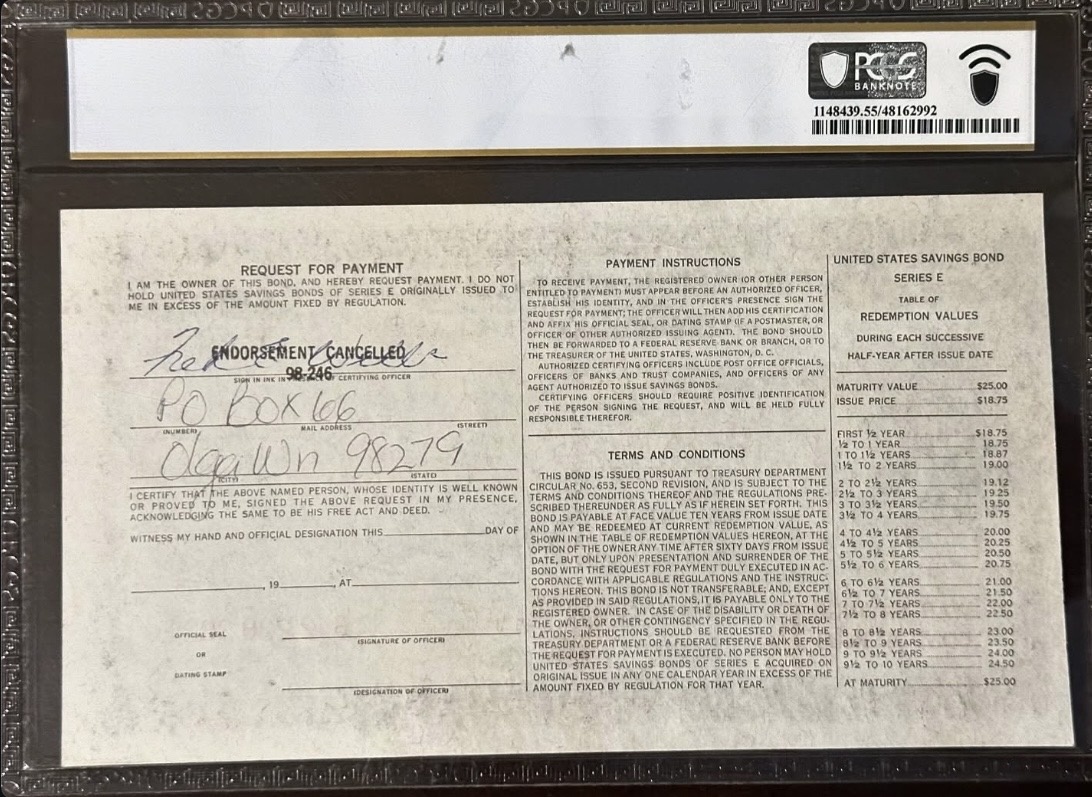 PCGS
BANKNOTE
1148439.55/48162992
REQUEST FOR PAYMENT
I AM THE OWNER OF THIS BOND, AND HEREBY REQUEST PAYMENT. I DO NOT
HOLD UNITED STATES SAVINGS BONDS OF SERIES E ORIGINALLY ISSUED TO
ME IN EXCESS OF THE AMOUNT FIXED BY REGULATION.
ENDORSEMENT CANCELLED
98-246
SIGN IN INK IN OF CERTIFYING OFFICER
PO BOX 66
(NUMBER) MAIL ADDRESS (STREET)
Olga Wn 98279
(CITY) (STATE)
I CERTIFY THAT THE ABOVE NAMED PERSON, WHOSE IDENTITY IS WELL KNOWN
OR PROVED TO ME, SIGNED THE ABOVE REQUEST IN MY PRESENCE,
ACKNOWLEDGING THE SAME TO BE HIS FREE ACT AND DEED.
WITNESS MY HAND AND OFFICIAL DESIGNATION THIS DAY OF
, 19 , AT
OFFICIAL SEAL
OR
DATING STAMP
(SIGNATURE OF OFFICER)
(DESIGNATION OF OFFICER)
PAYMENT INSTRUCTIONS
TO RECEIVE PAYMENT, THE REGISTERED OWNER (OR OTHER PERSON
ENTITLED TO PAYMENT) MUST APPEAR BEFORE AN AUTHORIZED OFFICER,
ESTABLISH HIS IDENTITY, AND IN THE OFFICER'S PRESENCE SIGN THE
REQUEST FOR PAYMENT; THE OFFICER WILL THEN ADD HIS CERTIFICATION
AND AFFIX HIS OFFICIAL SEAL, OR DATING STAMP (IF A POSTMASTER, OR
OFFICER OF OTHER AUTHORIZED ISSUING AGENT). THE BOND SHOULD
THEN BE FORWARDED TO A FEDERAL RESERVE BANK OR BRANCH, OR TO
THE TREASURER OF THE UNITED STATES, WASHINGTON, D. C.
AUTHORIZED CERTIFYING OFFICERS INCLUDE POST OFFICE OFFICIALS,
OFFICERS OF BANKS AND TRUST COMPANIES, AND OFFICERS OF ANY
AGENT AUTHORIZED TO ISSUE SAVINGS BONDS.
CERTIFYING OFFICERS SHOULD REQUIRE POSITIVE IDENTIFICATION
OF THE PERSON SIGNING THE REQUEST, AND WILL BE HELD FULLY
RESPONSIBLE THEREFOR.
TERMS AND CONDITIONS
THIS BOND IS ISSUED PURSUANT TO TREASURY DEPARTMENT
CIRCULAR No. 653, SECOND REVISION, AND IS SUBJECT TO THE
TERMS AND CONDITIONS THEREOF AND THE REGULATIONS PRE-
SCRIBED THEREUNDER AS FULLY AS IF HEREIN SET FORTH. THIS
BOND IS PAYABLE AT FACE VALUE TEN YEARS FROM ISSUE DATE
AND MAY BE REDEEMED AT CURRENT REDEMPTION VALUE, AS
SHOWN IN THE TABLE OF REDEMPTION VALUES HEREON, AT THE
OPTION OF THE OWNER ANY TIME AFTER SIXTY DAYS FROM ISSUE
DATE, BUT ONLY UPON PRESENTATION AND SURRENDER OF THE
BOND WITH THE REQUEST FOR PAYMENT DULY EXECUTED IN AC-
CORDANCE WITH APPLICABLE REGULATIONS AND THE INSTRUC-
TIONS HEREON. THIS BOND IS NOT TRANSFERABLE; AND, EXCEPT
AS PROVIDED IN SAID REGULATIONS, IT IS PAYABLE ONLY TO THE
REGISTERED OWNER. IN CASE OF THE DISABILITY OR DEATH OF
THE OWNER, OR OTHER CONTINGENCY SPECIFIED IN THE REGU-
LATIONS, INSTRUCTIONS SHOULD BE REQUESTED FROM THE
TREASURY DEPARTMENT OR A FEDERAL RESERVE BANK BEFORE
THE REQUEST FOR PAYMENT IS EXECUTED. NO PERSON MAY HOLD
UNITED STATES SAVINGS BONDS OF SERIES E ACQUIRED ON
ORIGINAL ISSUE IN ANY ONE CALENDAR YEAR IN EXCESS OF THE
AMOUNT FIXED BY REGULATION FOR THAT YEAR.
UNITED STATES SAVINGS BOND
SERIES E
TABLE OF
REDEMPTION VALUES
DURING EACH SUCCESSIVE
HALF-YEAR AFTER ISSUE DATE
MATURITY VALUE $25.00
ISSUE PRICE $18.75
FIRST ½ YEAR $18.75
½ TO 1 YEAR 18.75
1 TO 1½ YEARS 18.87
1½ TO 2 YEARS 19.00
2 TO 2½ YEARS 19.12
2½ TO 3 YEARS 19.25
3 TO 3½ YEARS 19.50
3½ TO 4 YEARS 19.75
4 TO 4½ YEARS 20.00
4½ TO 5 YEARS 20.25
5 TO 5½ YEARS 20.50
5½ TO 6 YEARS 20.75
6 TO 6½ YEARS 21.00
6½ TO 7 YEARS 21.50
7 TO 7½ YEARS 22.00
7½ TO 8 YEARS 22.50
8 TO 8½ YEARS 23.00
8½ TO 9 YEARS 23.50
9 TO 9½ YEARS 24.00
9½ TO 10 YEARS 24.50
AT MATURITY $25.00